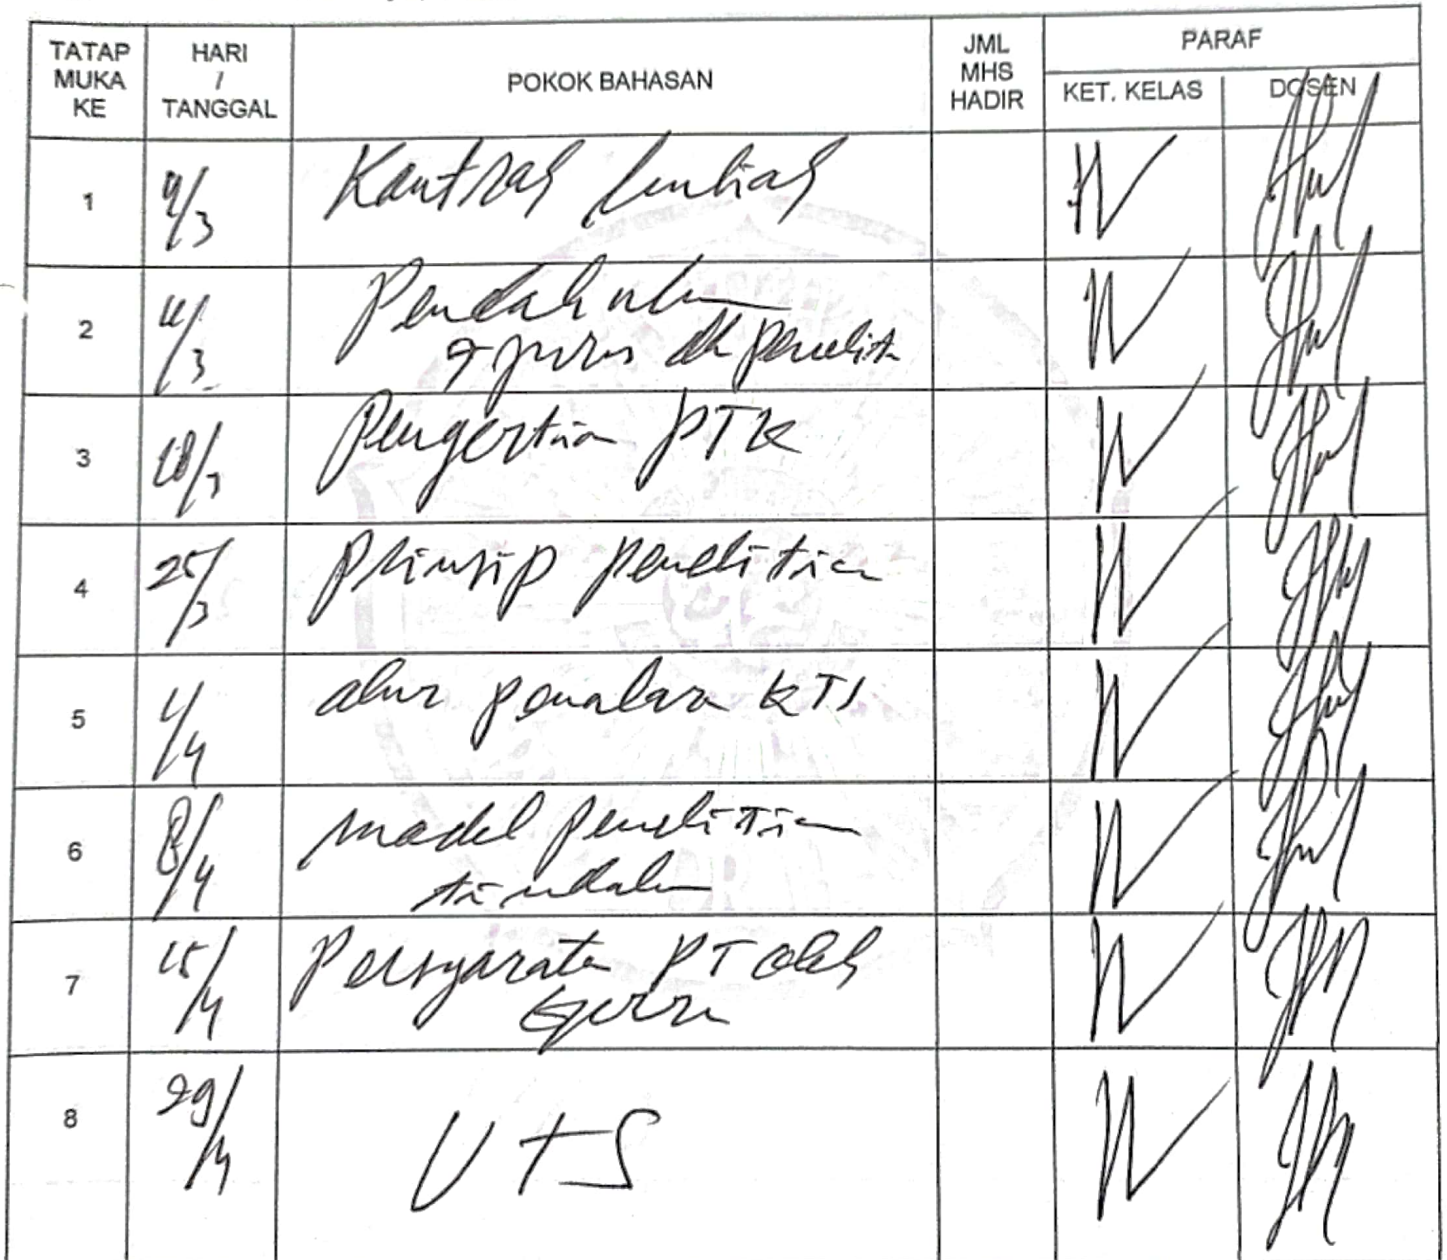 TATAP MUKA KE
HARI / TANGGAL
POKOK BAHASAN
JML MHS HADIR
PARAF
KET. KELAS
DOSEN
1 4/3 Kontrak kuliah
2 11/3 Pendahuluan
penelit
3 18/3 Pengertian PTK
4 25/3 Prinsip penelitian
5 1/4 alur penalaran KTI
6 8/4 model penelitian
tindakan
7 15/4 Persyaratan PT oleh
guru
8 29/4 UTS